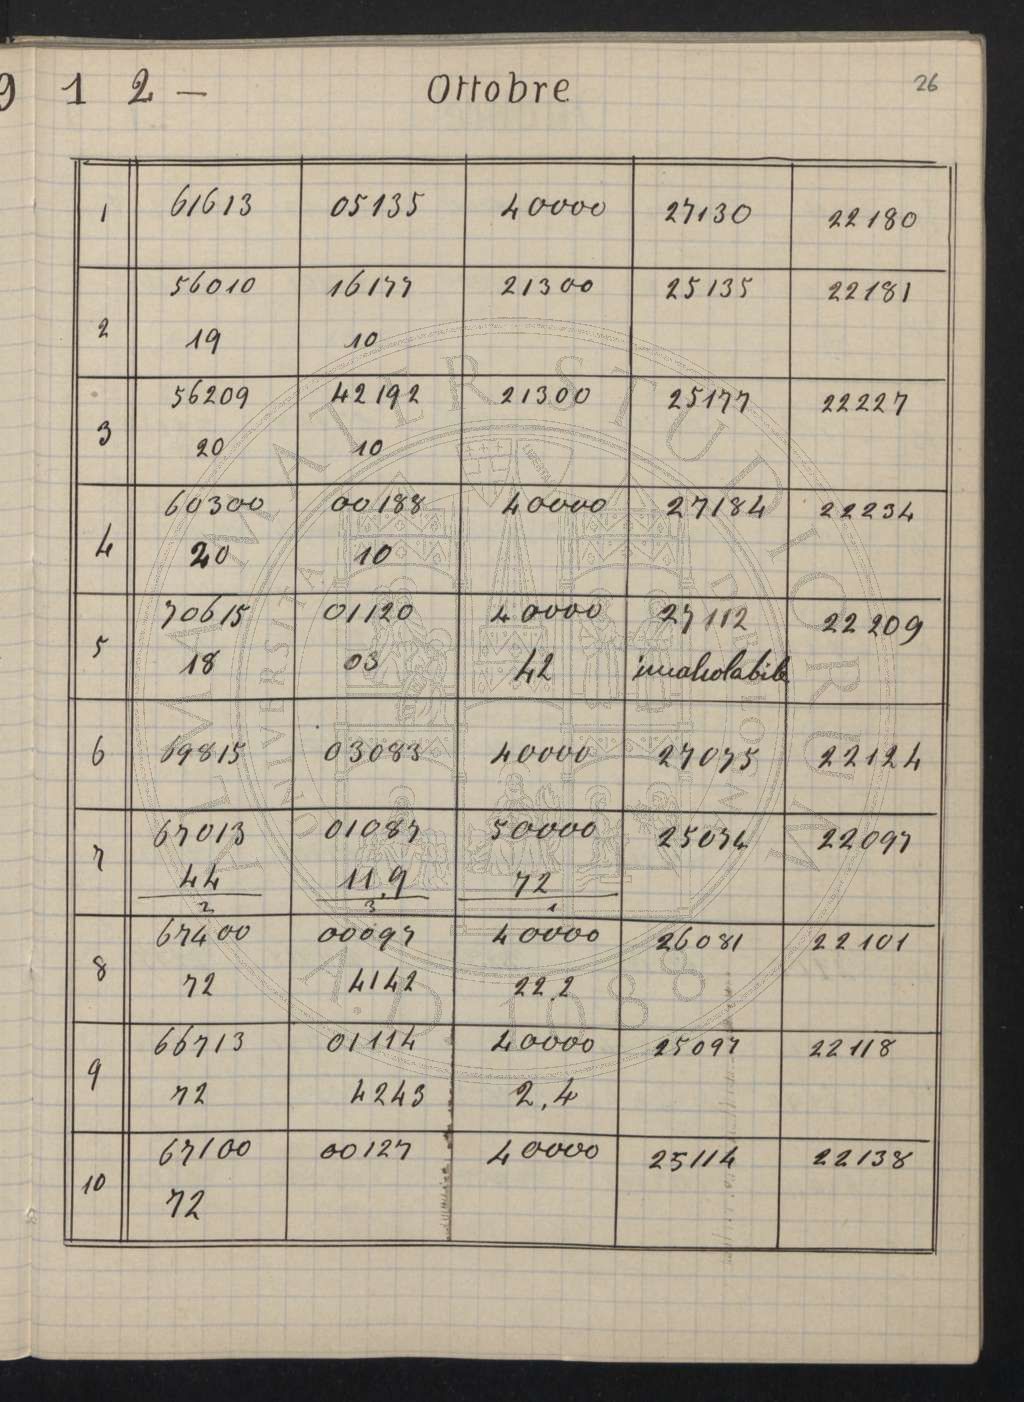 912 — Ottobre 26
1 61613 05135 40000 27130 22180
2 56010 16177 21300 25135 22181
19 10
3 56209 42192 21300 25177 22227
20 10
4 60300 00188 40000 27184 22234
20 10
5 70615 01120 40000 27112 22209
18 03 42
6 69815 03083 40000 27075 22124
7 67013 01087 50000 25074 22097
44 11,9 72
2 3 1
8 67400 00097 40000 26081 22101
72 4142 22,2
9 66713 01114 40000 25097 22118
72 4243 2,4
10 67100 00127 40000 25114 22138
72
ALMA MATER STUDIORUM
A.D. 1088